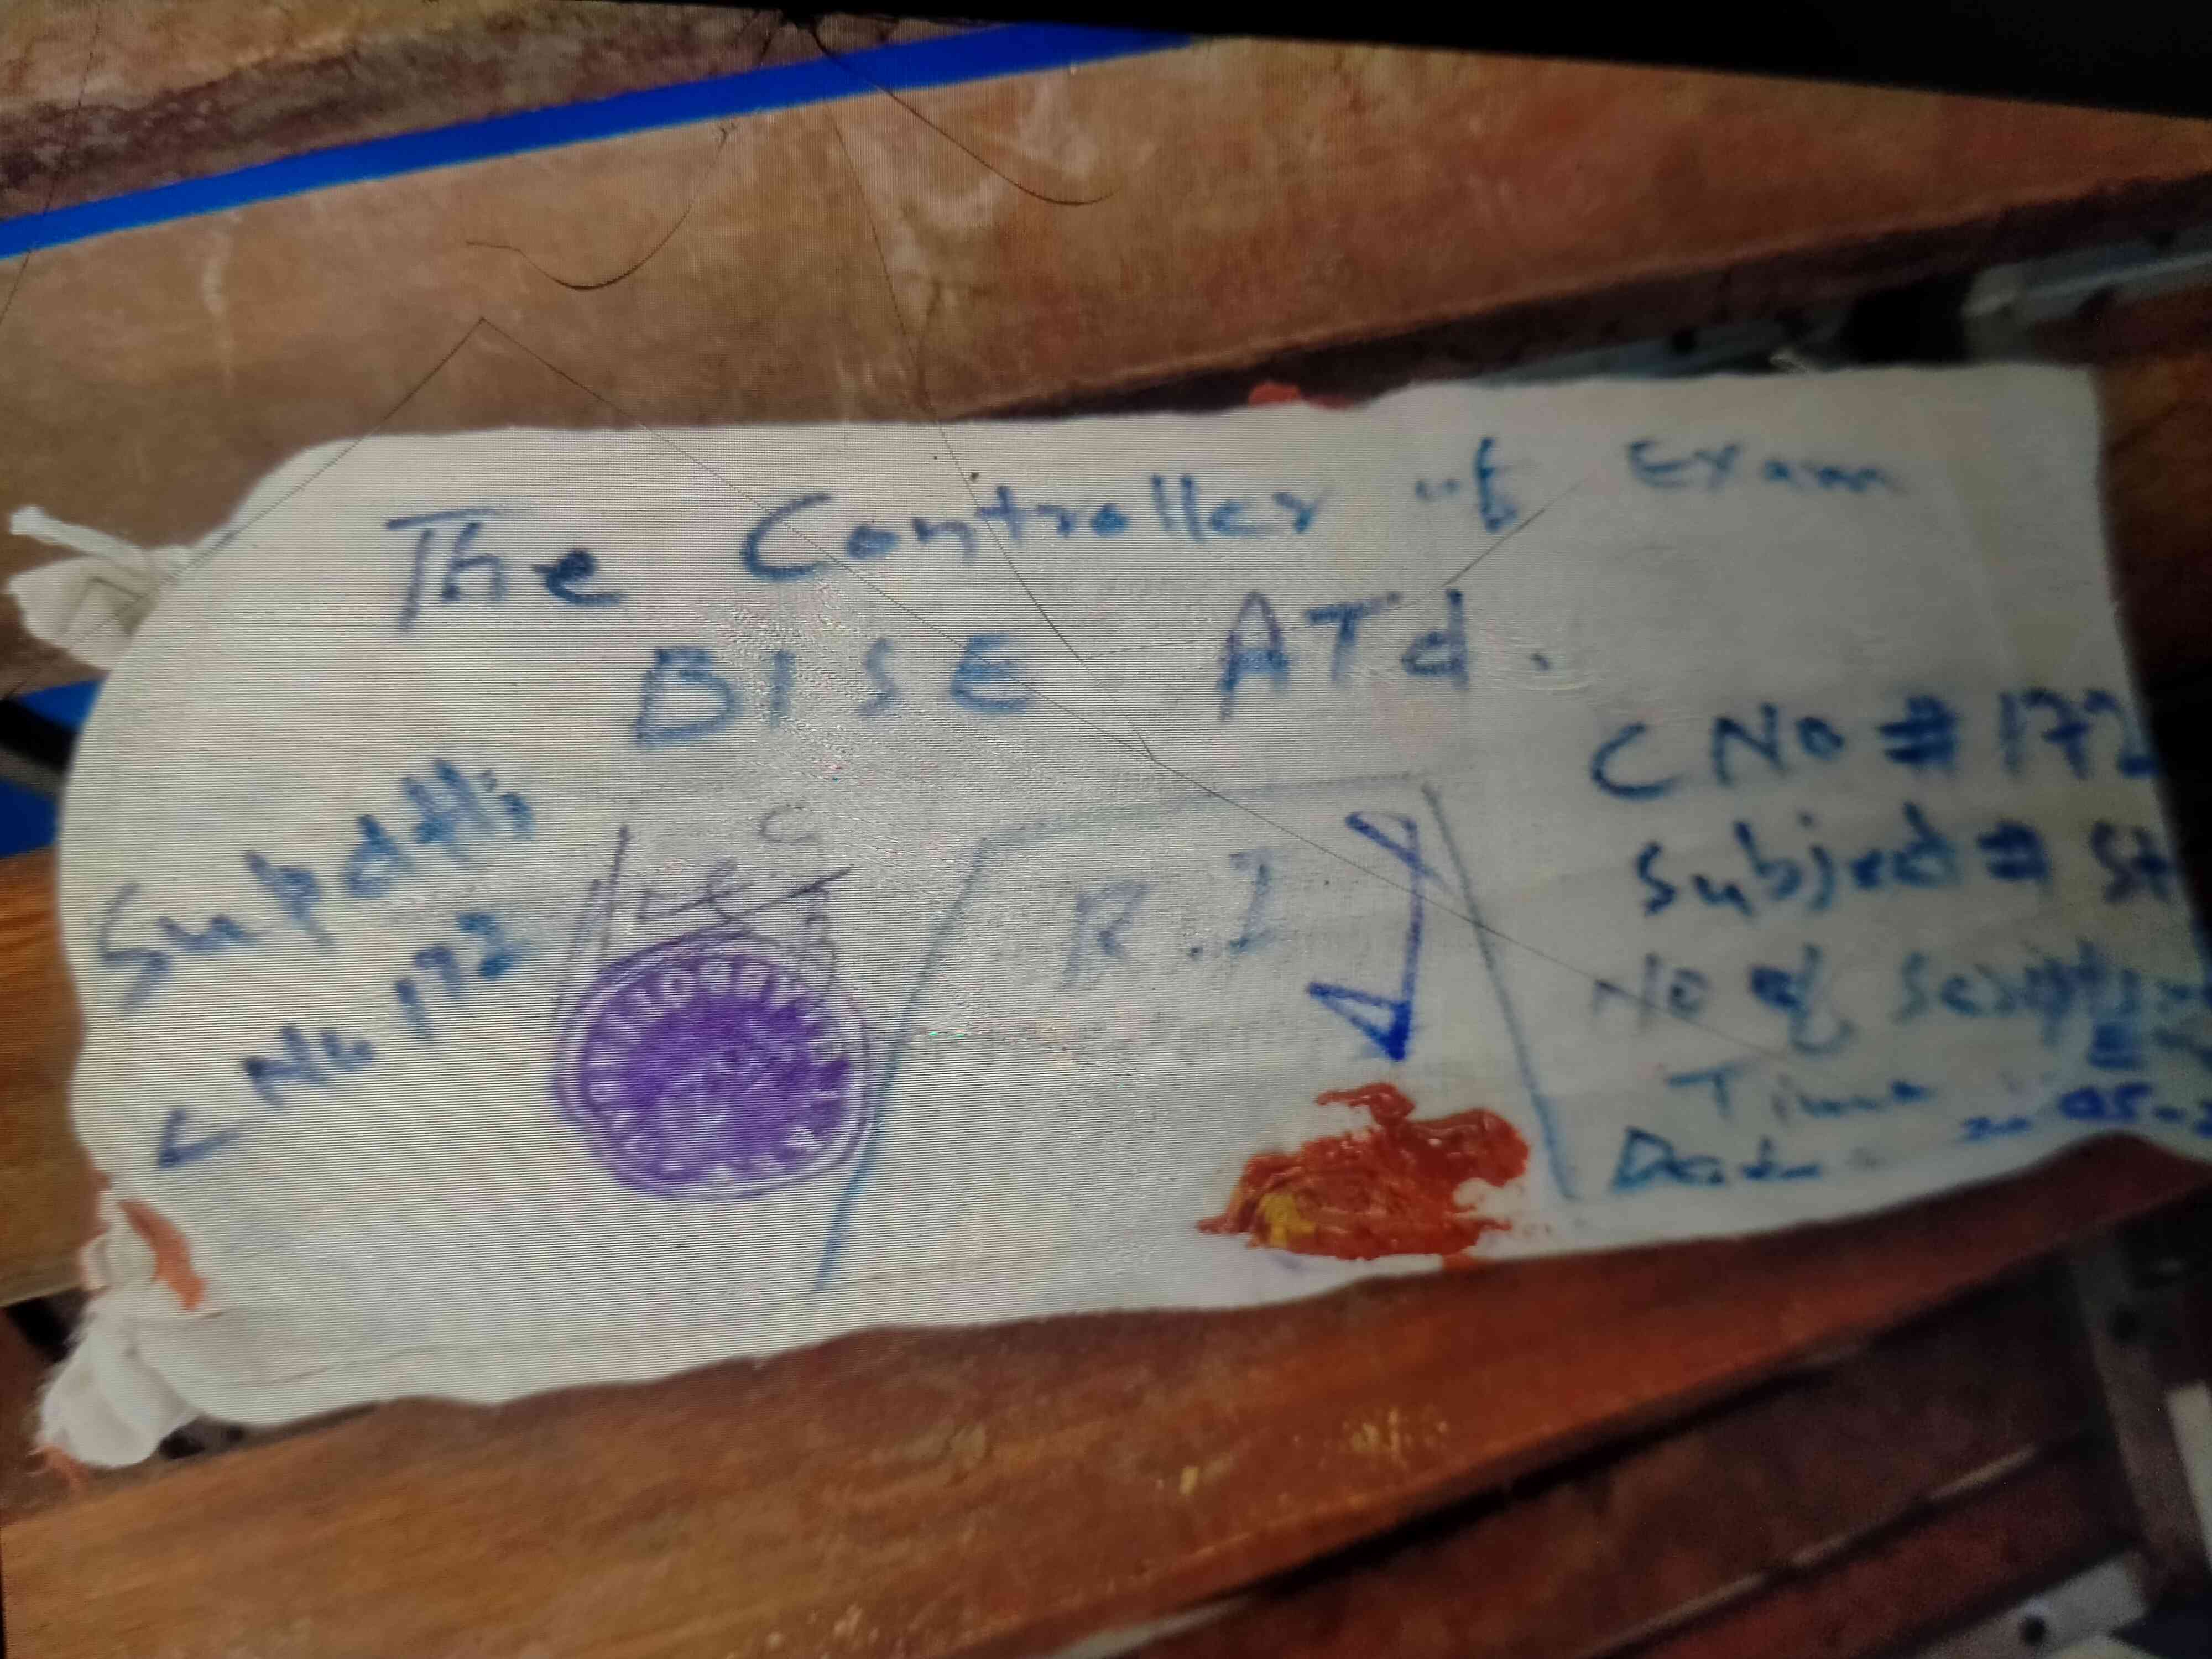 The Controller of Exam
BISE ATd.
Supdtt:
C No 172
R.I
C No # 172
Subject # St
No of Scripts
Time
Date 05